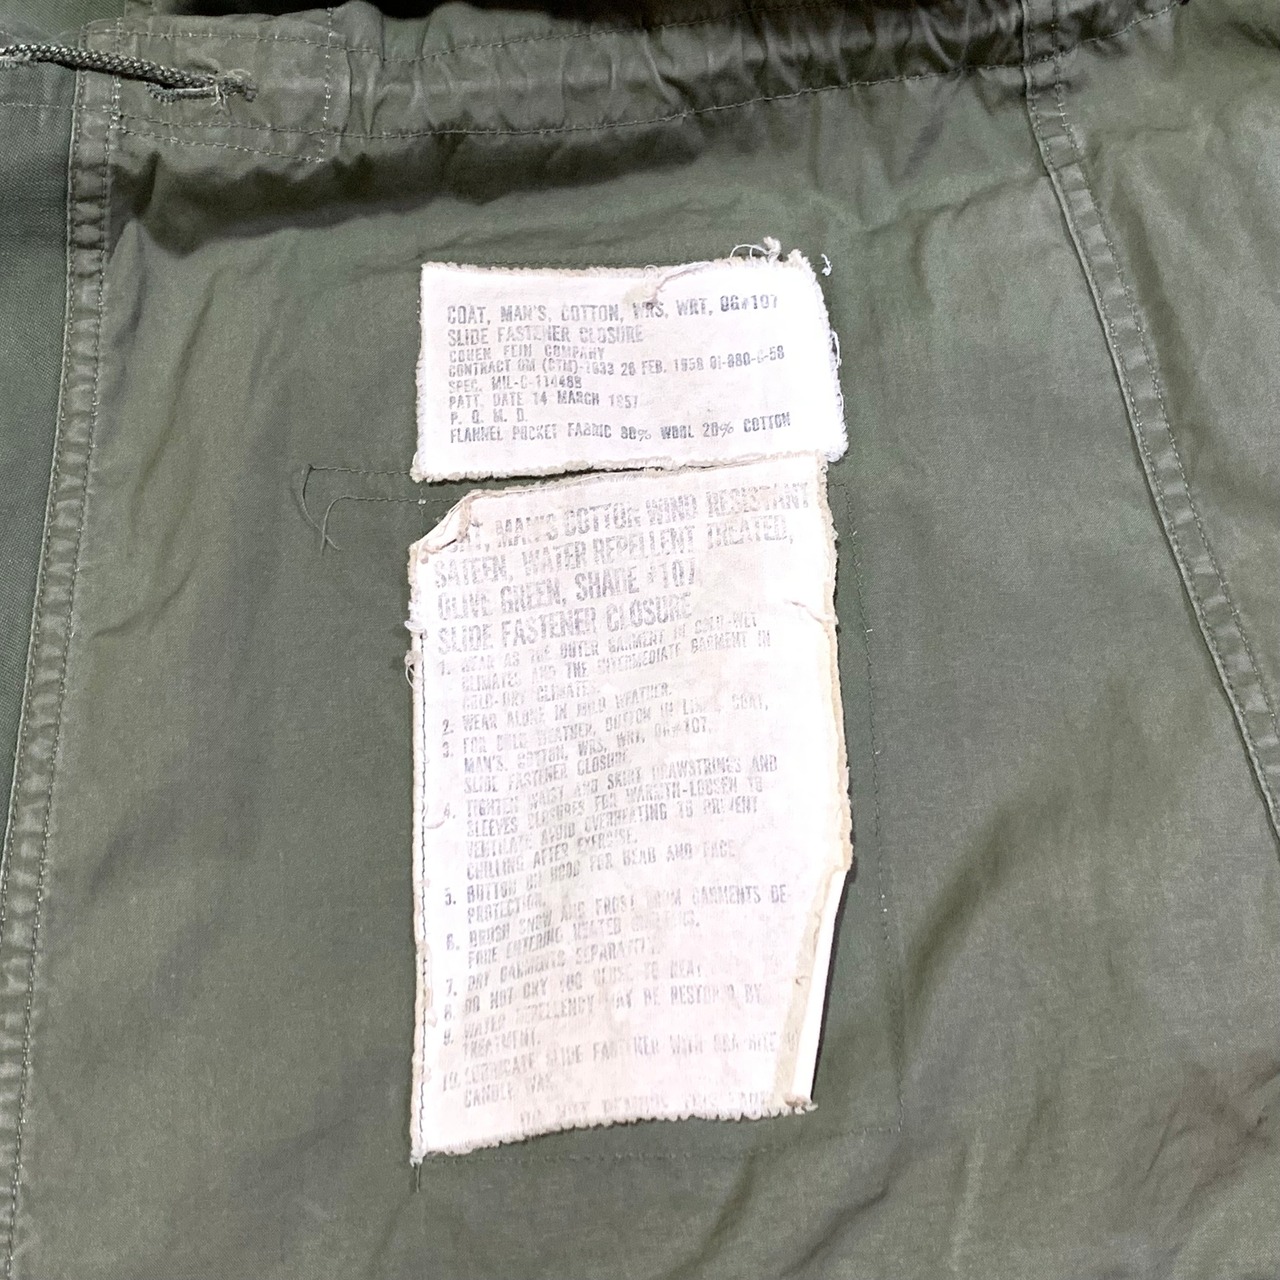 COAT, MAN'S, COTTON, WRS, WRT, OG#107
SLIDE FASTENER CLOSURE
COHEN FEIN COMPANY
CONTRACT QM (CTM)-1033 26 FEB. 1958 OI-880-C-58
SPEC. MIL-C-11448B
PATT. DATE 14 MARCH 1957
P. Q. M. D.
FLANNEL POCKET FABRIC 80% WOOL 20% COTTON
COAT, MAN'S COTTON WIND RESISTANT
SATEEN, WATER REPELLENT TREATED,
OLIVE GREEN, SHADE #107
SLIDE FASTENER CLOSURE
1. WEAR AS THE OUTER GARMENT IN COLD-WET
CLIMATES AND THE INTERMEDIATE GARMENT IN
COLD-DRY CLIMATES.
2. WEAR ALONE IN MILD WEATHER.
3. FOR COLD WEATHER, BUTTON IN LINER, COAT,
MAN'S, COTTON, WRS, WRT, OG#107,
SLIDE FASTENER CLOSURE
4. TIGHTEN WAIST AND SKIRT DRAWSTRINGS AND
SLEEVES CLOSURES FOR WARMTH-LOOSEN TO
VENTILATE AVOID OVERHEATING TO PREVENT
CHILLING AFTER EXERCISE.
5. BUTTON ON HOOD FOR HEAD AND FACE
PROTECTION.
6. BRUSH SNOW AND FROST FROM GARMENTS BE-
FORE ENTERING HEATED
7. DRY GARMENTS SEPARATELY.
8. DO NOT DRY TOO CLOSE TO HEAT
9. WATER REPELLENCY MAY BE RESTORED BY
TREATMENT.
10. LUBRICATE SLIDE FASTENER WITH GRAPHITE
CANDLE WAX.
DO NOT REMOVE THIS LABEL